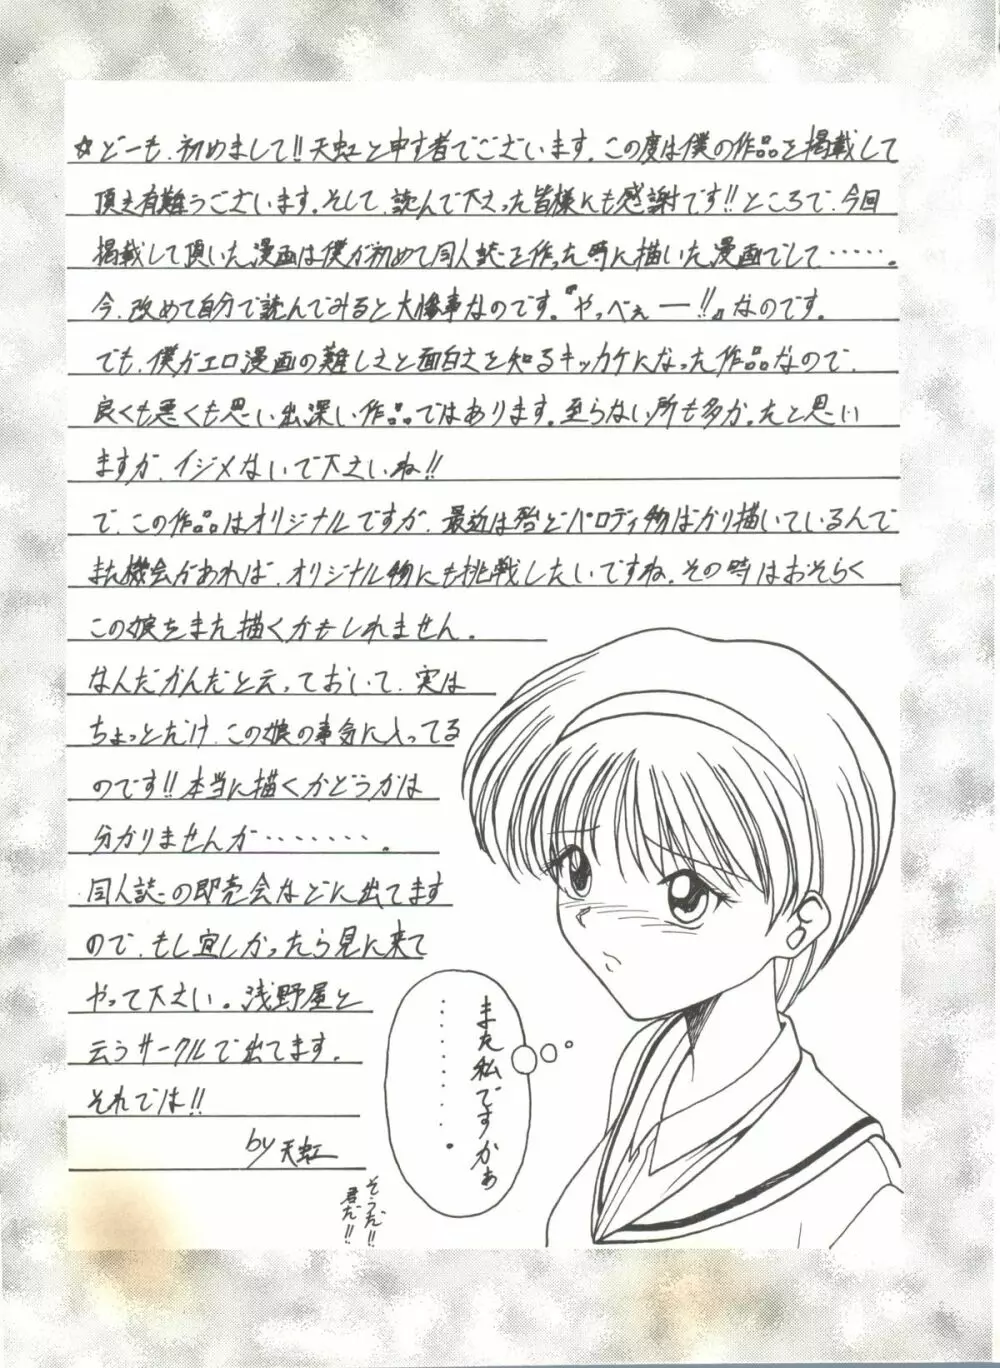 ☆どーも、初めまして!!天虹と申す者でございます。この度は僕の作品を掲載して
頂き有難うございます。そして、読んで下さった皆様にも感謝です!!ところで、今回
掲載して頂いた漫画は僕が初めて同人誌を作った時に描いた漫画でして……。
今、改めて自分で読んでみると大惨事なのです。『やっべぇー!!』なのです。
でも、僕がエロ漫画の難しさと面白さを知るキッカケになった作品なので、
良くも悪くも思い出深い作品ではあります。至らない所も多かったと思い
ますが、イジメないで下さいね!!
で、この作品はオリジナルですが、最近は殆どパロディ物ばかり描いているんで
また機会があれば、オリジナル物にも挑戦したいですね。その時はおそらく
この娘をまた描くかもしれません。
なんだかんだと云っておいて、実は
ちょっとだけ、この娘の事気に入ってる
のです!!本当に描くかどうかは
分かりませんが………。
同人誌の即売会などに出てます
ので、もし宜しかったら見に来て
やって下さい。浅野屋と
云うサークルで出てます。
それでは!!
by天虹
また私ですかぁ
………。
そうだ!!
君だ!!